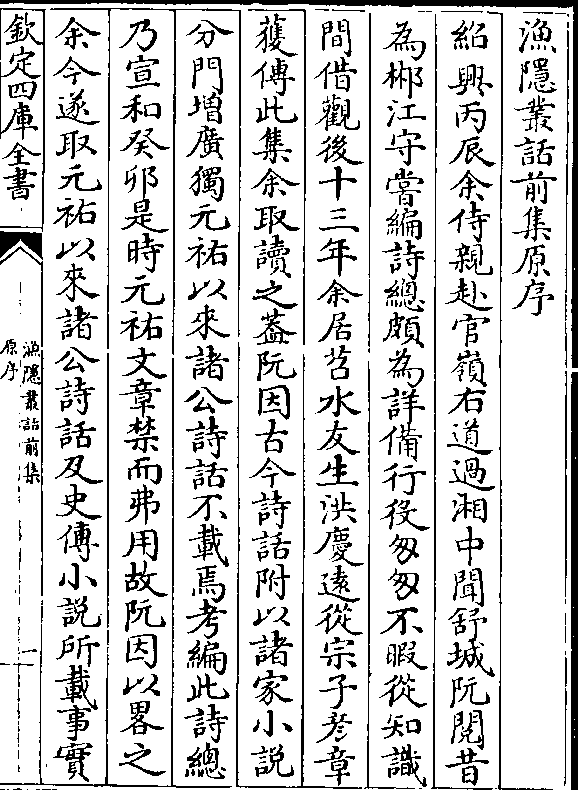 漁隱叢話前集原序
紹興丙辰余侍親赴官嶺右道過湘中聞舒城阮閱昔
為郴江守嘗編詩總頗為詳備行役匆匆不暇從知識
間借觀後十三年余居苕水友生洪慶遠從宗子彥章
獲傳此集余取讀之葢阮因古今詩話附以諸家小説
分門增廣獨元祐以來諸公詩話不載焉考編此詩總
乃宣和癸卯是時元祐文章禁而弗用故阮因以畧之
余今遂取元祐以來諸公詩話及史傳小説所載事實
欽定四庫全書
漁隱叢話前集
原序
一